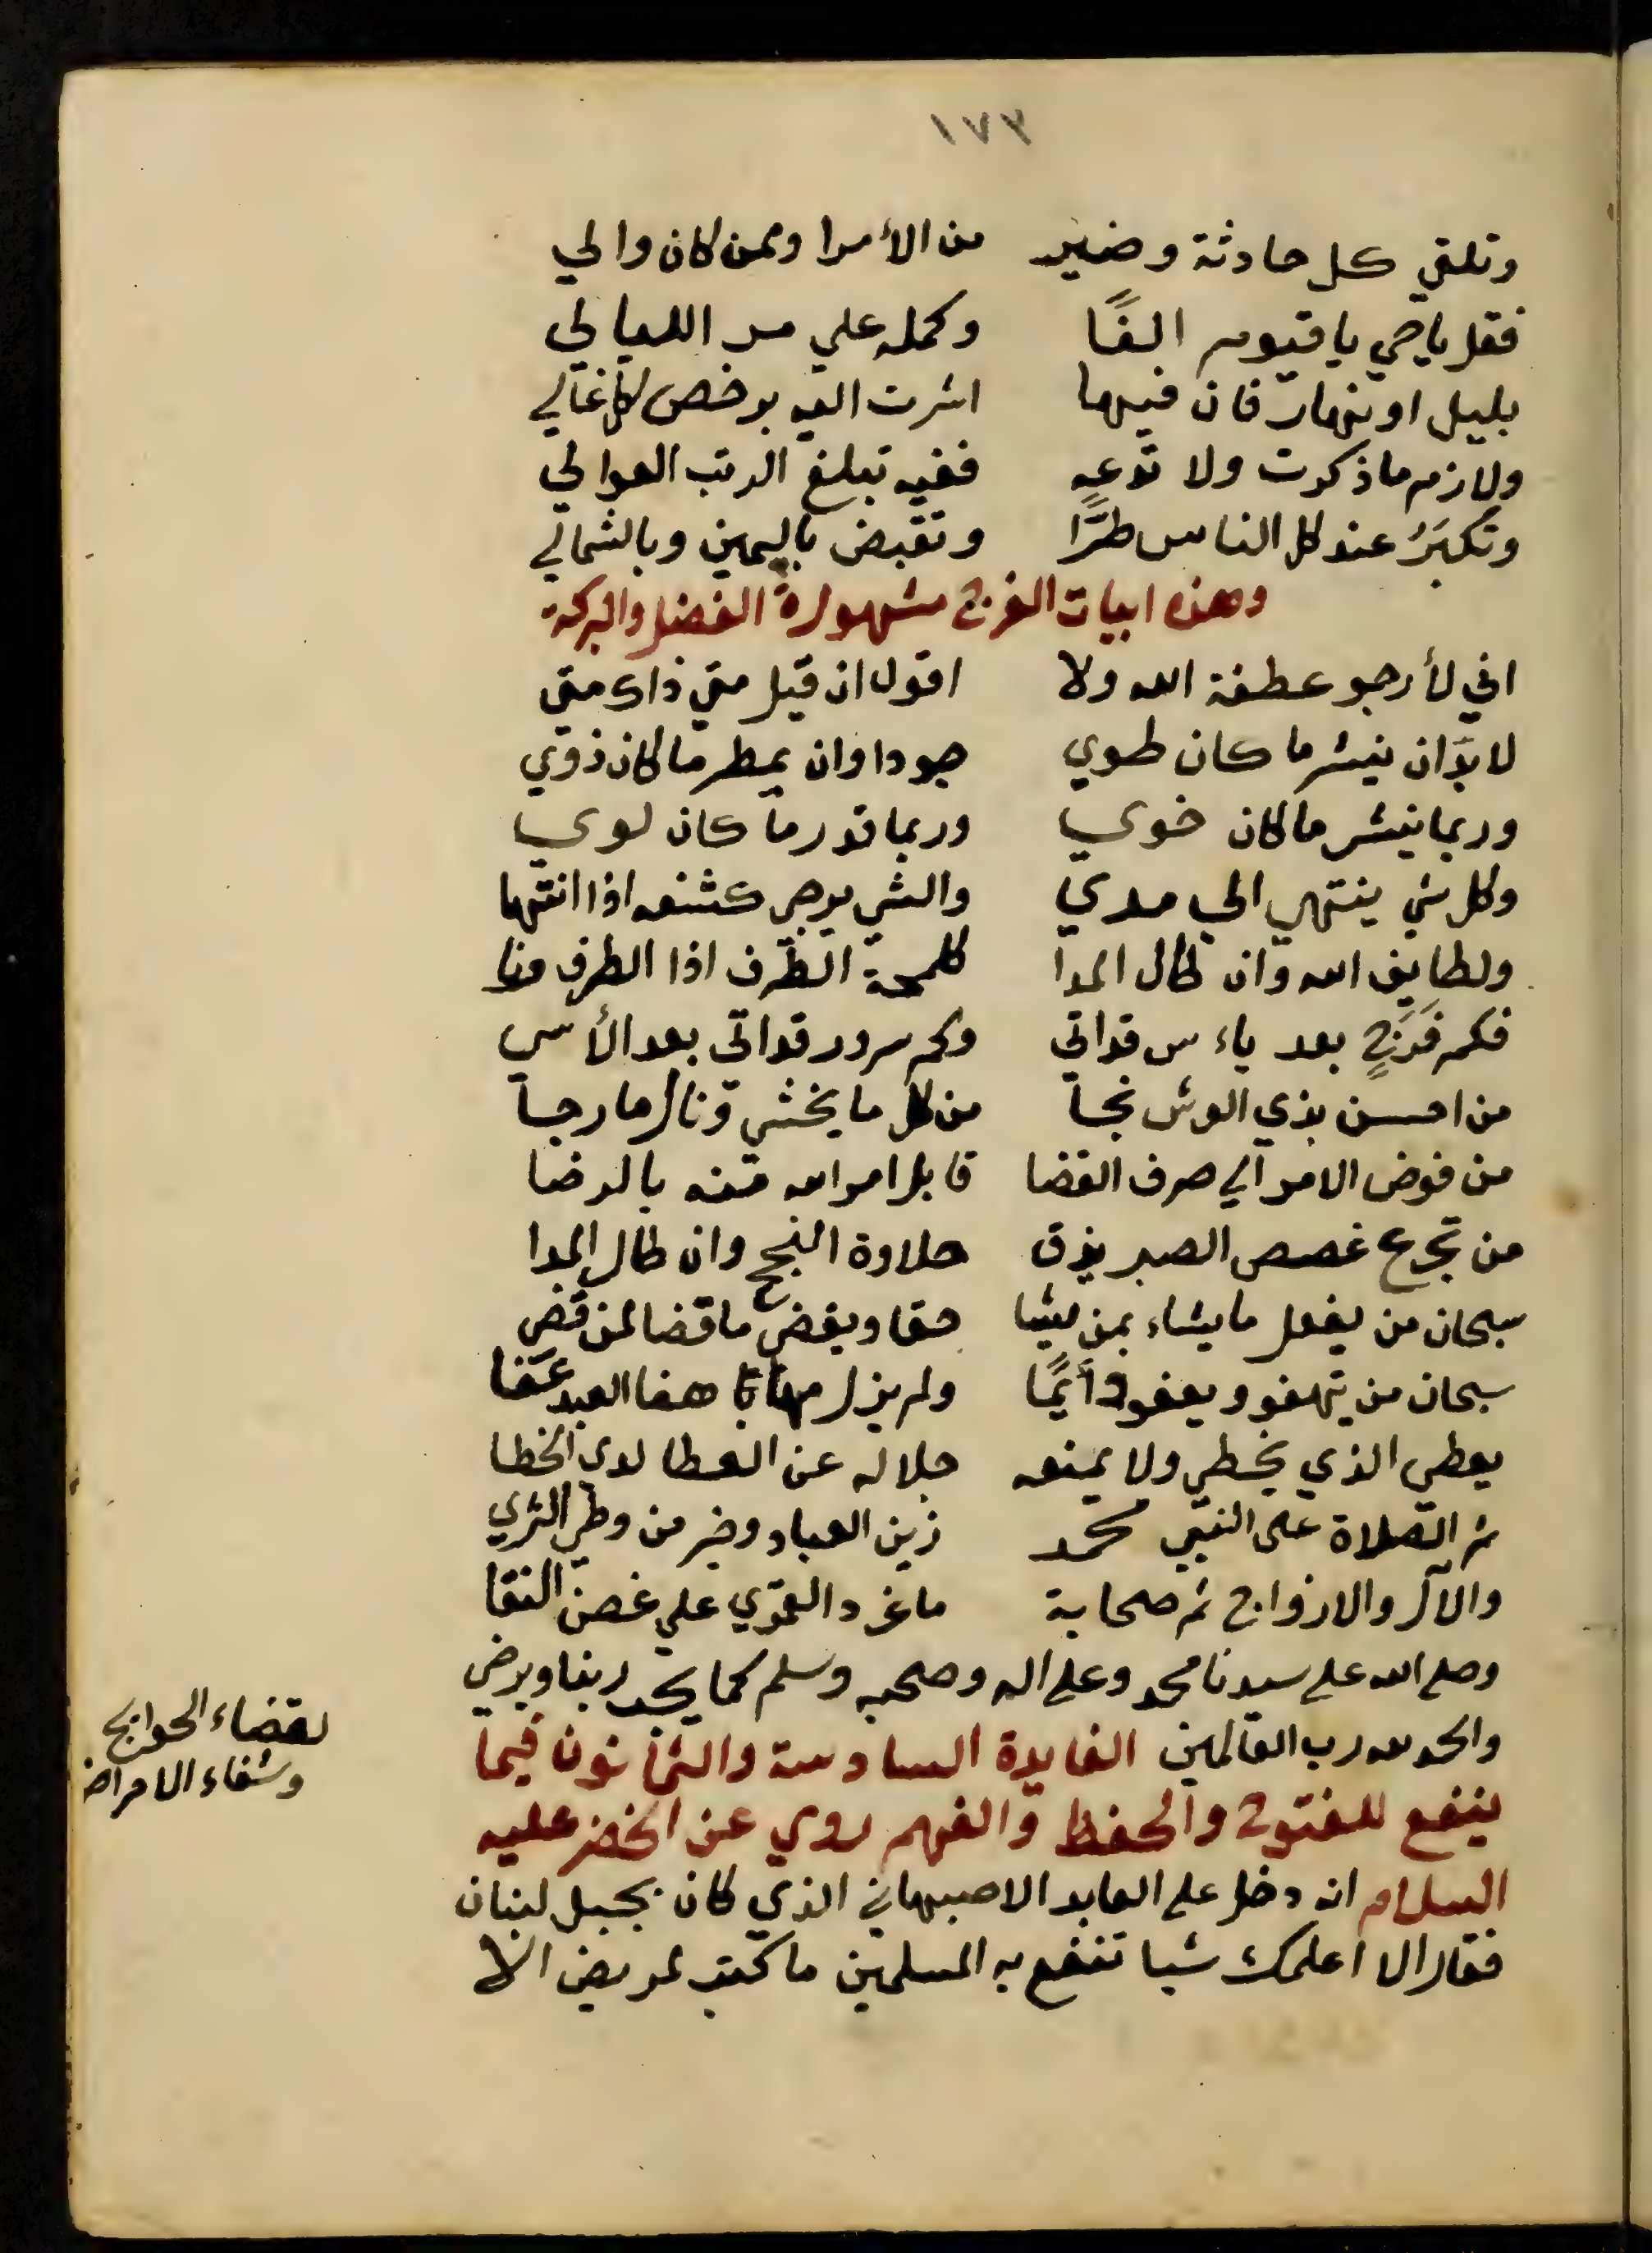 ١٧٣
وتلقي كل حادثة وضير من الأمرا وممن كان والي
فقل ياحي ياقيوم الفًا وكمله علي مر الليالي
بليل اونهار فان فيها اشرت اليه برخص كل غالي
ولازم ماذكرت ولا تدعه ففيه تبلغ الرتب العوالي
وتكبَرُ عند كل الناس طرًّا وتقبض باليمين وبالشمالي
وهذه ابيات الفرج مشهورةً الفضل والبركة
اني لأرجو عطفة الله ولا اقول ان قيل متي ذاك متي
لابدّ ان ينشر ما كان طوي جودا وان يمطر ما كان ذوي
وربما ينشر ما كان خوي وربما قدر ما كان لوي
وكل شي ينتهي الي مدي والشي يرجي كشفه اذا انتها
ولطايف الله وان طال المدا كلمحة الطّرف اذا الطرف
فكم فَرَجٍ بعد ياءس قداتي وكم سرور قداتي بعد الأسي
من احسن بذي العرش نجا من كل ما يخشي ونال ما رجا
من فوض الامر الي صرف القضا قابل امر الله منه بالرضا
من تجرع غصص الصبر يذق حلاوة النجح وان طال المدا
سبحان من يفعل ما يشاء بمن يشا حقا ويقضي ما قضا لمن قضي
سبحان من نهفو ويعفو دأيمًا ولم يزل مهما هفا العبد عَفا
يعطي الذي يخطي ولا يمنعه جلاله عن العطا لدي الخطا
ثم الصّلاة على النبي محمد زين العباد وخير من وطي الثري
والآل والازواج ثم صحابة ما غرد القمري علي غصن النقا
وصلي الله علي سيدنا محمد وعلي اله وصحبه وسلم كما يحب ربنا ويرضي
والحمد لله رب العالمين الفايدة السادسة والثمانون فيما
ينفع للفتوح والحفظ والفهم روي عن الخضر عليه
السلام انه دخل علي العابد الاصبهاني الذي كان بجبل لبنان
فقال الا اعلمك شيا تنفع به المسلمين ما كتب لمريض الا
لقضاء الحوايج
وشفاء الامراض